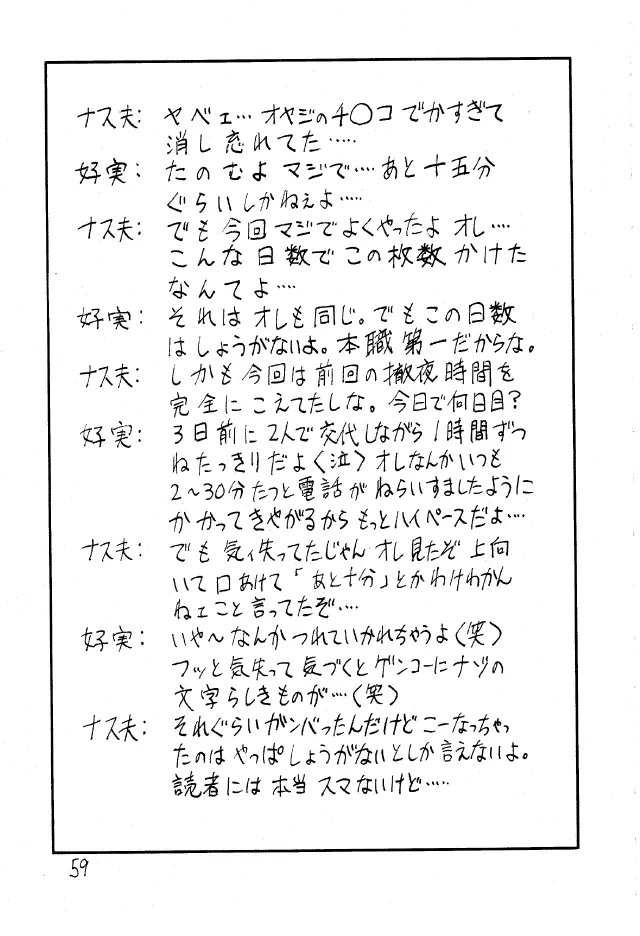 ナス夫: ヤベェ… オヤジのチ〇コ でかすぎて
消し忘れてた……
好実: たのむよ マジで…. あと十五分
ぐらいしかねぇよ……
ナス夫: でも今回マジでよくやったよ オレ….
こんな日数でこの枚数かけた
なんてよ….
好実: それはオレも同じ。でもこの日数
はしょうがないよ。本職第一だからな。
ナス夫: しかも今回は前回の撤夜時間を
完全にこえてたしな。今日で何日目?
好実: 3日前に2人で交代しながら1時間ずつ
ねたっきりだよ(泣) オレなんかいつも
2〜30分たつと電話がねらいすましたように
かかってきやがるからもっとハイペースだよ….
ナス夫: でも気ィ失ってたじゃん オレ見たぞ 上向
いて口あけて「あと十分」とかわけわかん
ねェこと言ってたぞ….
好実: いや〜なんかつれていかれちゃうよ(笑)
フッと気失って気づくとゲンコーにナゾの
文字らしきものが….(笑)
ナス夫: それぐらいガンバったんだけどこーなっちゃっ
たのはやっぱしょうがないとしか言えないよ。
読者には本当スマないけど……
59